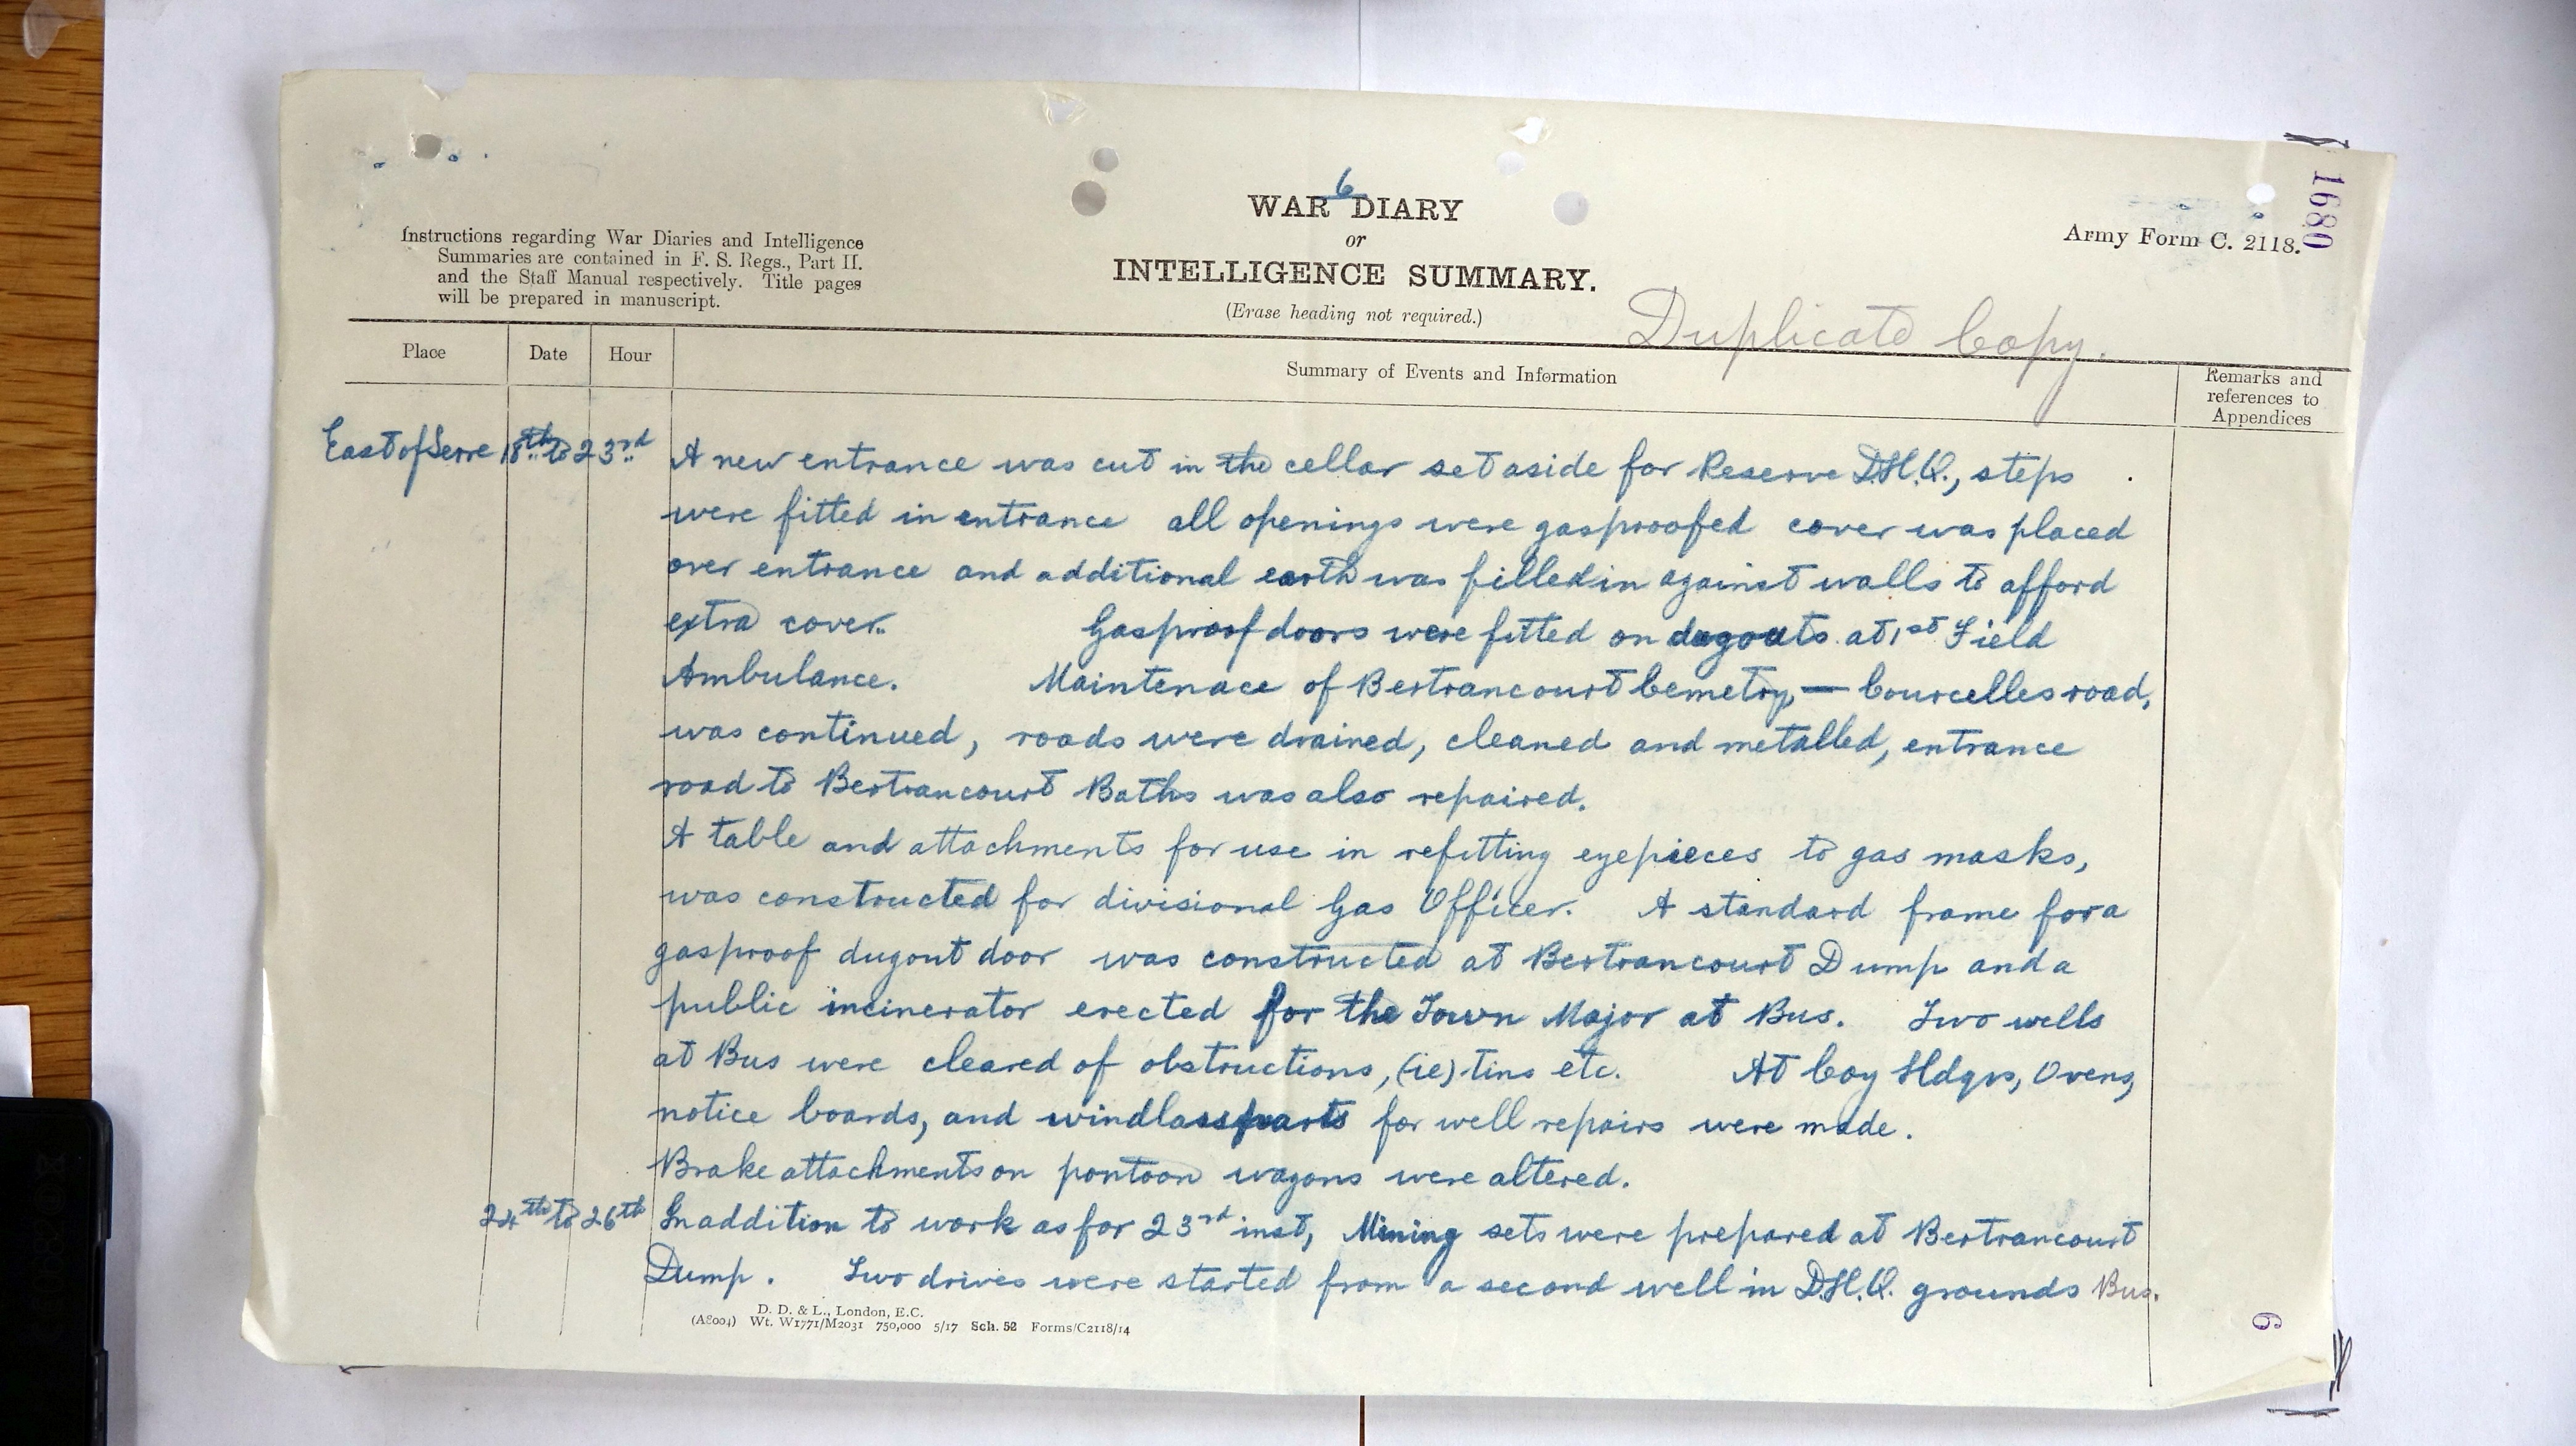 6
WAR DIARY
or
INTELLIGENCE SUMMARY.
(Erase heading not required.)
Instructions regarding War Diaries and Intelligence
Summaries are contained in F. S. Regs., Part II.
and the Staff Manual respectively. Title pages
will be prepared in manuscript.
Army Form C. 2118.
1680
Duplicate Copy.
Place Date Hour Summary of Events and Information Remarks and references to Appendices
East of Serre 18th to 23rd A new entrance was cut in the cellar set aside for Reserve D.H.Q., steps
were fitted in entrance all openings were gasproofed cover was placed
over entrance and additional earth was filled in against walls to afford
extra cover. Gasproof doors were fitted on dugouts at 1st Field
Ambulance. Maintenace of Bertrancourt Cemetry, — Courcelles road,
was continued, roads were drained, cleaned and metalled, entrance
road to Bertrancourt Baths was also repaired.
A table and attachments for use in refitting eyepieces to gas masks,
was constructed for divisional Gas Officer. A standard frame for a
gasproof dugout door was constructed at Bertrancourt Dump and a
public incinerator erected for the Town Major at Bus. Two wells
at Bus were cleared of obstructions, (ie) tins etc. At Coy Hdqrs, Ovens,
notice boards, and windlass parts for well repairs were made.
Brake attachments on pontoon wagons were altered.
24th to 26th In addition to work as for 23rd inst, Mining sets were prepared at Bertrancourt
Dump. Two drives were started from a second well in D.H.Q. grounds Bus.
D. D. & L., London, E.C.
(A8004) Wt. W1771/M2031 750,000 5/17 Sch. 52 Forms/C2118/14
6